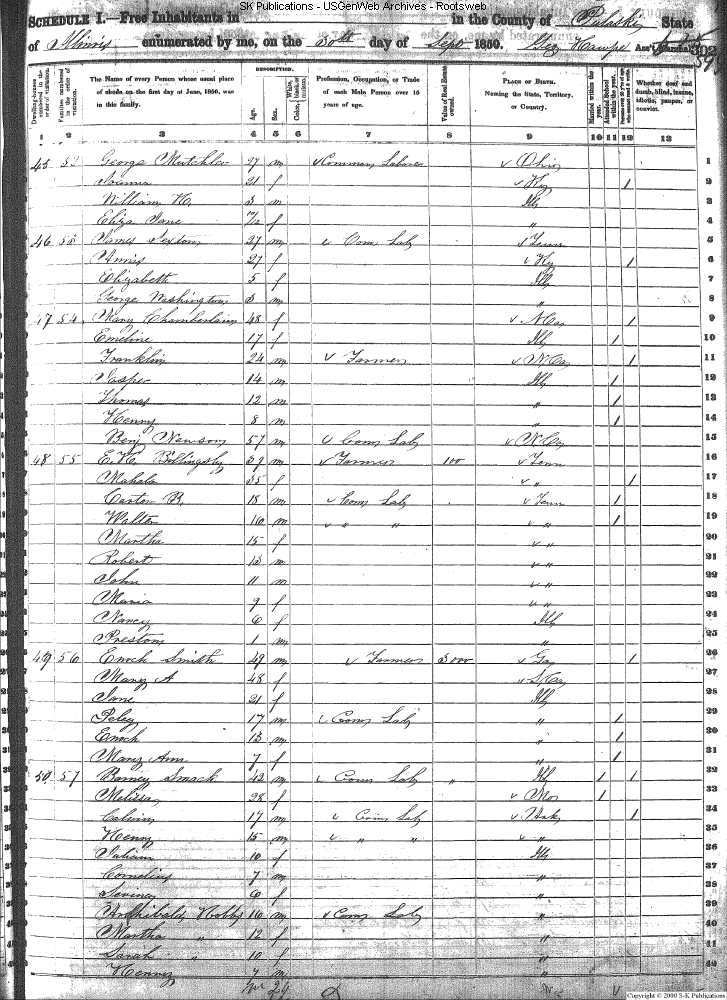 SK Publications - USGenWeb Archives - Rootsweb
SCHEDULE I.—Free Inhabitants in in the County of Pulaski State
of Illinois enumerated by me, on the 30th day of Sept 1850. Ass't Marshal. 302
59
Dwelling-houses numbered in the order of visitation.
Families numbered in the order of visitation.
The Name of every Person whose usual place of abode on the first day of June, 1850, was in this family.
DESCRIPTION.
Age.
Sex.
White, black, or mulatto.
Color
Profession, Occupation, or Trade of each Male Person over 15 years of age.
Value of Real Estate owned.
PLACE OF BIRTH.
Naming the State, Territory, or Country.
Married within the year.
Attended School within the year.
Persons over 20 y'rs of age who cannot read & write.
Whether deaf and dumb, blind, insane, idiotic, pauper, or convict.
1 2 3 4 5 6 7 8 9 10 11 12 13
45 George Mutchler 27 m Common Laborer Ohio 1
21 f Ky / 2
William H. 3 m Ills 3
Eliza Jane 7/12 f " 4
46 James Sexton 27 m Com Lab Tenn 5
Annis 27 f Ky / 6
Elizabeth 5 f Ills 7
George Washington 3 m " 8
47 54 Mary Chamberlain 48 f N Ca / 9
Emeline 17 f Ills / 10
Franklin 24 m Farmer N Ca / 11
Jasper 14 m Ills / 12
Thomas 12 m " / 13
Henry 8 m " / 14
Benj Newsom 57 m Com Lab N Ca 15
48 55 E. H. Billingsly 39 m Farmer 100 Tenn 16
Mahala 35 f " / 17
Caston B. 18 m Com Lab Tenn / 18
Walter 16 m " " " / 19
Martha 15 f " 20
Robert 13 m " 21
John 11 m " 22
Maria 9 f " 23
Nancy 6 f Ills 24
Preston 1 m " 25
49 56 Enoch Smith 49 m Farmer 3000 Ga / 26
Mary A 48 f S Ca 27
Jane 21 f Ills 28
Peley 17 m Com Lab " / 29
Enoch 13 m " / 30
Mary Ann 7 f " / 31
50 57 Barney Smack 42 m Com Lab " Ills / / 32
Melissa 28 f Mo / 33
Calvin 17 m Com Lab Unk / 34
Henry 15 m " " " 35
10 f Ills 36
Cornelius 7 m " 37
6 f " 38
Archibald Hobbs 16 m Com Lab " 39
Martha " 12 f " 40
Sarah " 10 f " 41
Henry 7 m " 42
Copyright © 2000 S-K Publications